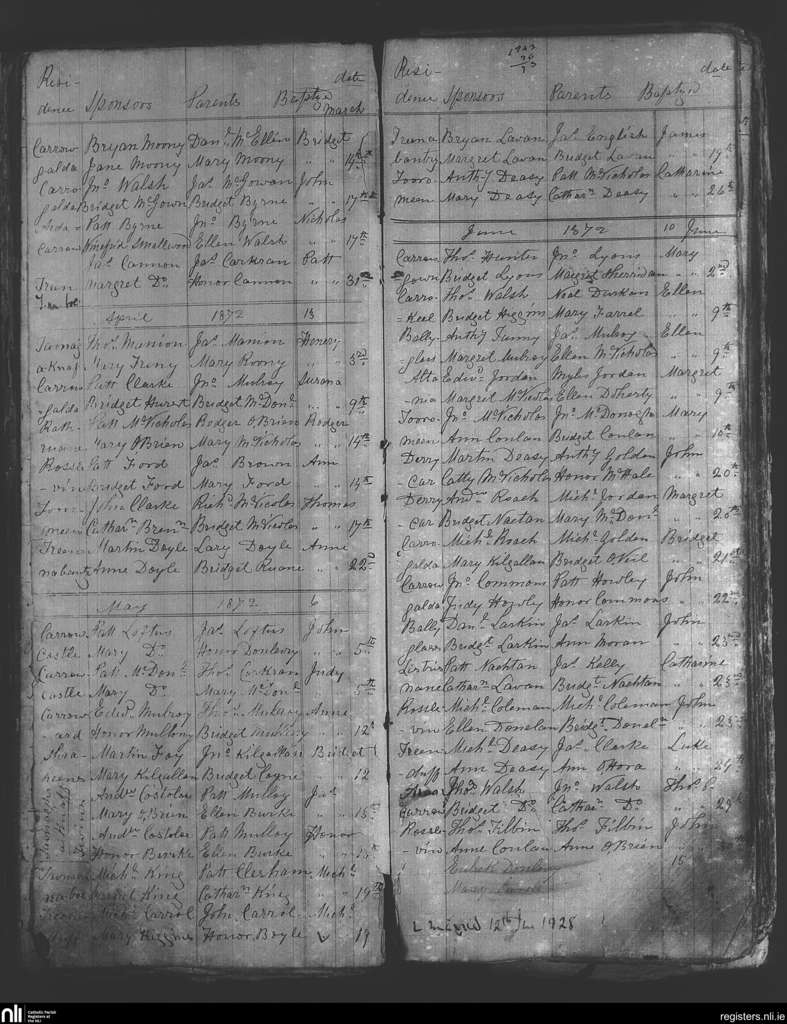 Resi-
date
dence Sponsors Parents Baptyd March
Carrow Bryan Moony Danl McEllin Bridget
galda Jane Moony Mary Moony " " 14th
Carro Jno Walsh Jas McGowan John
galda Bridget McGown Bridget Byrne " " 17th
Patt Byrne Jno Byrne Nicholas
Carrow Winefrid Smallwood Ellen Walsh " " 17th
Jas Cannon Jas Corkran Patt
Treen Margret Do Honor Cannon " " 31st
April 1872 13
Tavnag Thos Manion Jas Manion Henery
aKnaf Mary Freny Mary Roony " " 3rd
Carrow Patt Clarke Jno Mulroy Susana
galda Bridget Hurst Bridget McDonl " " 9th
Rath- Patt McNicholas Rodger O Brien Rodger
ruane Mary O Brien Mary McNicholas " " 14th
Rosse Patt Ford Jas Brown Ann
- vin Bridget Ford Mary Ford " " 14th
Tooro John Clarke Richd McNicolas Thomas
meen Catharn Brenn Bridget McNicolas " " 17th
Treena Martin Doyle Lary Doyle Anne
nabanty Anne Doyle Bridget Ruane " " 22nd
May 1872 6
Carrow Patt Loftus Jas Loftus John
Castle Mary Do Honor Donlevey " " 5th
Carrow Patt McDonl Thos Corkran Judy
Castle Mary Do Mary McDonl " " 5th
Carrow Edwd Mulroy Thos Mulroy Anne
- ard Honor Mullony Bridget " " 12th
Martin Fay Jno Kilgallan Bridget
Mary Kilgallan Bridget Coyne " " 12
Andw Costolos Patt Mulloy Jas
Mary O Brien Ellen Burke " " 15th
Andw Costolos Patt Mulloy Honor
Honor Burke Ellen Burke " "
Michl King Patt Clesham Michl
Bridget King Catharn King " " 19th
Michl Carrol John Carrol Michl
Mary Higgins Honor Boyle " 19
1943
Resi-
date
dence Sponsors Parents Baptyd
Treena Bryan Lavan Jas English James
banty Margret Lavan Bridget Lavan " " 19th
Tooro- Anthy Deasy Patt McNicholas Catharine
meen Mary Deasy Catharn Deasy " " 26th
June 1872 10 June
Carrow Thos Hunter Jno Lyons Mary
gown Bridget Lyons Margret Sherridan " " 2nd
Carro- Thos Walsh Neal Durkan Ellen
= Keel Bridget Higgins Mary Farrel " " 9th
Bally- Anthy Funny Jas Mulroy Ellen
glass Margret Mulroy Ellen McNicholas " " 9th
Alta Edwd Jordan Myls Jordan Margret
Margret McNicolas Ellen Doherty " " 9th
Tooro- Jno McNicholas Jno McDonogh Mary
meen Ann Conlan Bridget Conlan " " 16th
Derry Martin Deasy Anthy Goldon John
- Car Catty McNicholas Honor McHale " " 20th
Derry Andw Roach Michl Jordan Margret
- Car Bridget Naetan Mary McDonl " " 20th
Carro- Michl Roach Michl Goldon Bridget
galda Mary Kilgallan Bridget O Neil " " 21st
Carrow Jno Commons Patt Howley John
galda Judy Howley Honor Commons " " 22nd
Bally Danl Larkin Jas Larkin John
glass Bridgt Larkin Ann Moran " " 23rd
Patt Naehtan Jas Kelly Catharine
Catharn Lavan Bridgt Naehtan " " 23rd
Rossle Michl Coleman Michl Coleman John
- vin Ellen Donelan Bridgt Doneln " " 23rd
Treen Michl Deasy Jas Clarke Luke
Ann Deasy Ann O Hora " " 29th
Thos Walsh Jno Walsh Thos P.
Carrow Bridget Do Catharn Do " " 29th
Rosse- Thos Filbin Thos Filbin John
- vin Anne Conlan Anne O Brien " "
15
married 12th Jan 1928
nli Catholic Parish Registers at the NLI
registers.nli.ie